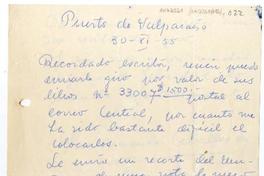 Puerto de Valparaíso
30-XI-55
Recordado escritor, recién puedo
enviarle giro por valor de sus
libros nº 33007 1500 postal al
correo Central, por cuanto me
ha sido bastante difícil el
colocarlos.
Le envío un recorte del
una nota